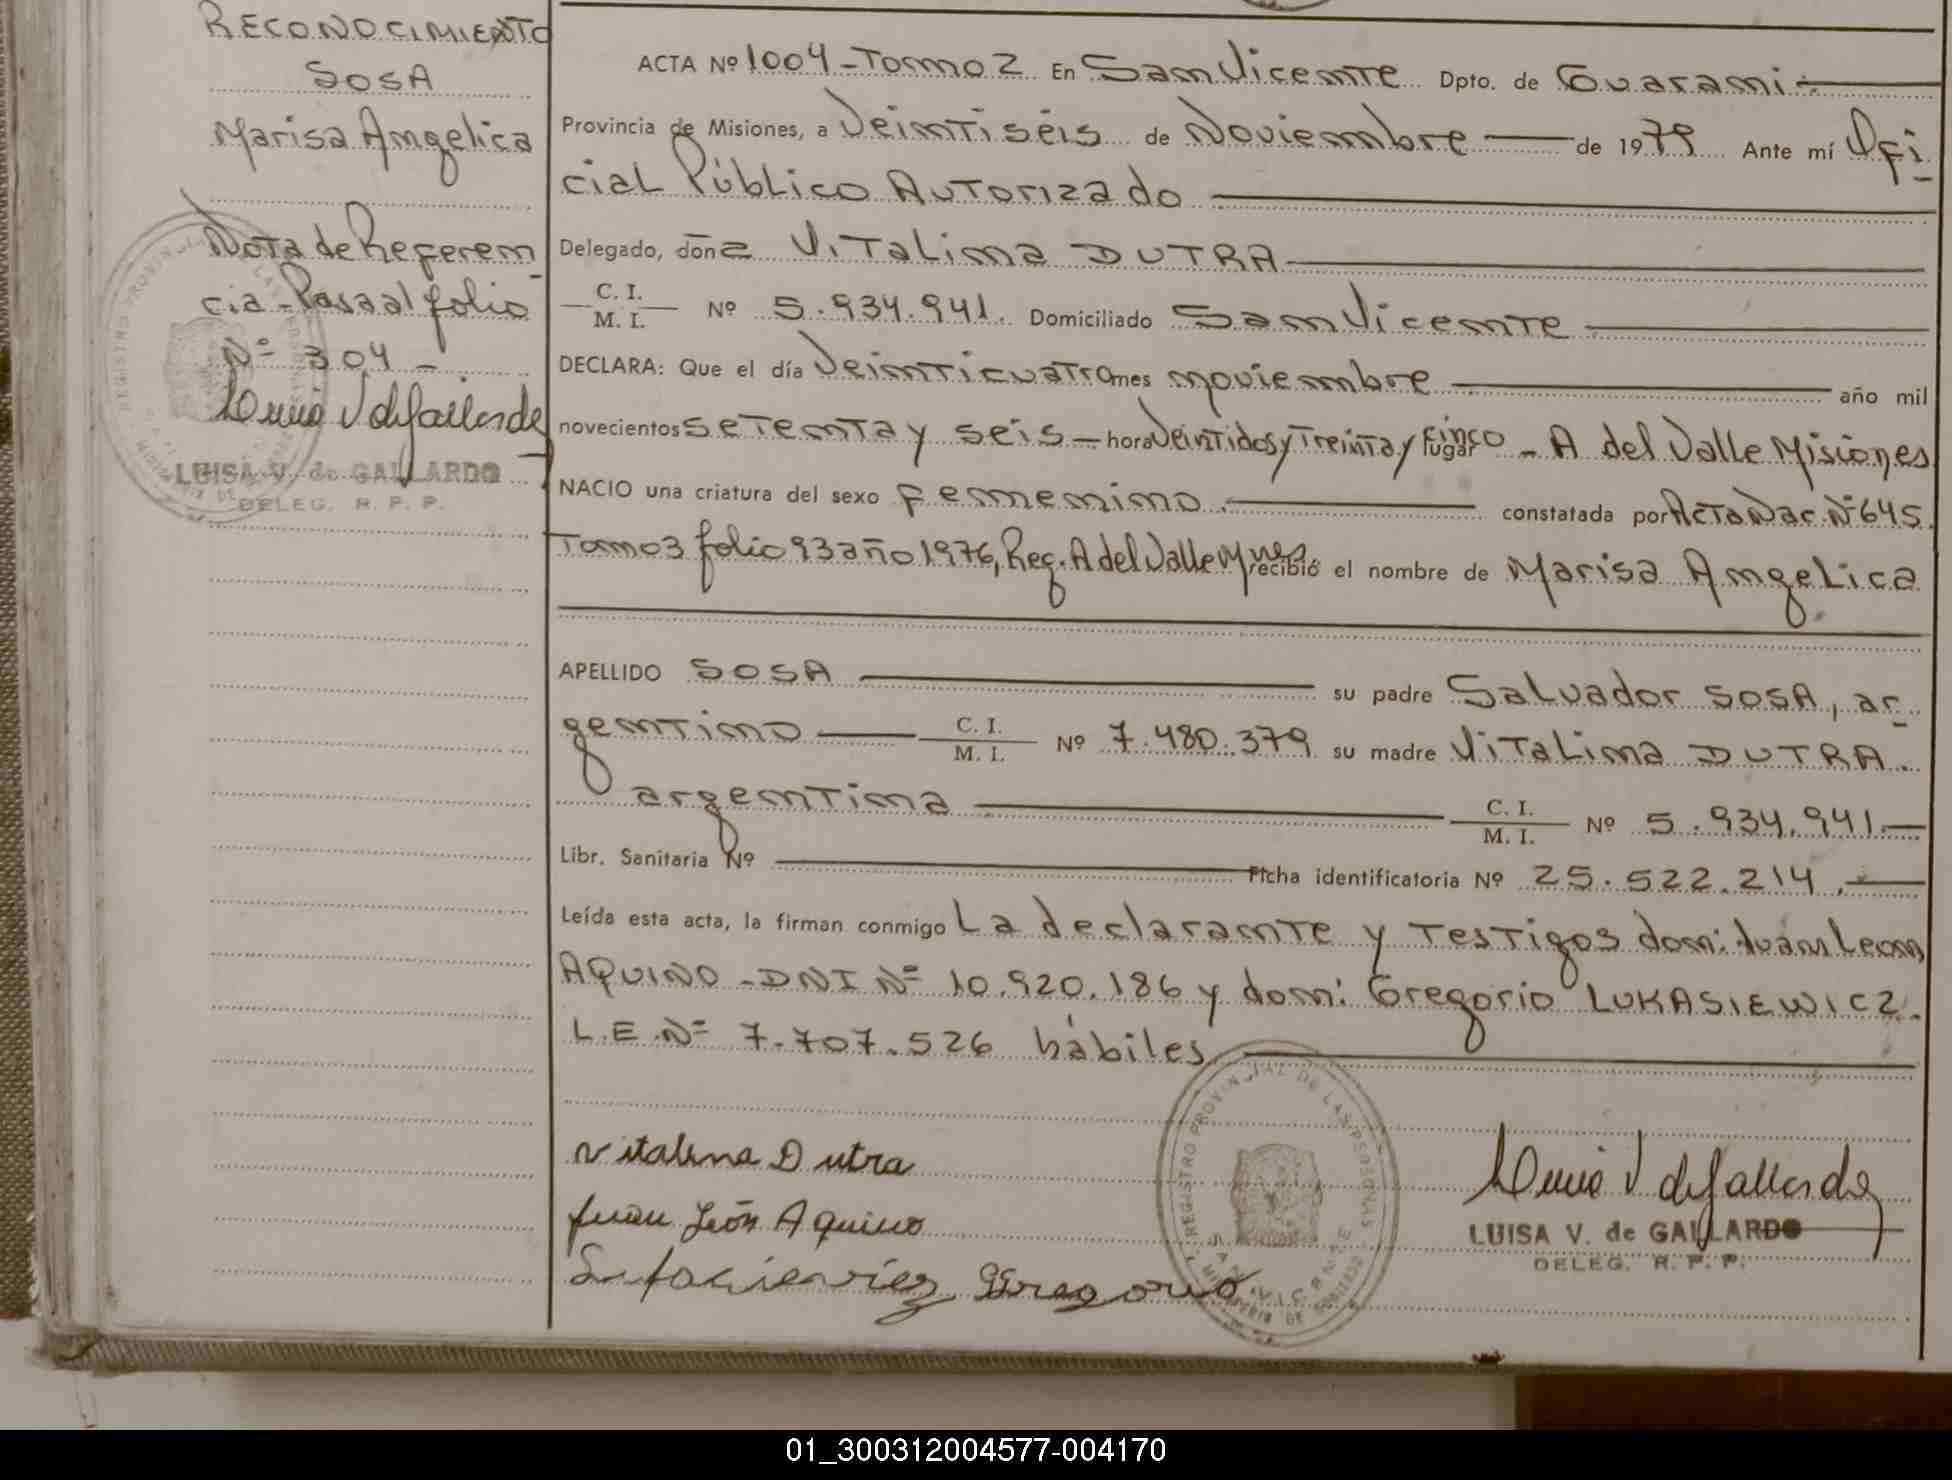 RECONOCIMIENTO
SOSA
Marisa Angelica
Nota de Referen
cia - Pasa al folio
Nº 304 -
LUISA V. de GALLARDO
DELEG. R. P. P.
ACTA Nº 1004 - Tomo 2 En San Vicente Dpto. de Guarani
Provincia de Misiones, a Veintiséis de Noviembre de 1979 Ante mí Ofi
cial Público Autorizado
Delegado, doña Vitalina DUTRA
C. I.
M. I. Nº 5.934.941. Domiciliado San Vicente
DECLARA: Que el día Veinticuatro mes noviembre año mil
novecientos setenta y seis - hora Veintidos y Treinta y cinco lugar - A del Valle Misiones
NACIO una criatura del sexo femenino. constatada por Acta Nac. Nº 645.
Tomo 3 folio 93 año 1976, Reg. A del Valle Mnes recibió el nombre de Marisa Angelica
APELLIDO SOSA su padre Salvador SOSA, ar
gentino C. I.
M. I. Nº 7.480.379 su madre Vitalina DUTRA.
argentina C. I.
M. I. Nº 5.934.941.
Libr. Sanitaria Nº Ficha identificatoria Nº 25.522.214.
Leída esta acta, la firman conmigo La declarante y Testigos don: Juan Leon
AQUINO - DNI Nº 10.920.186 y don: Gregorio LUKASIEWICZ.
L.E. Nº 7.707.526 hábiles
Vitalina Dutra
Juan León Aquino
Gregorio
REGISTRO PROVINCIAL DE LAS PERSONAS
LUISA V. de GALLARDO
DELEG. R. P. P.
01_300312004577-004170